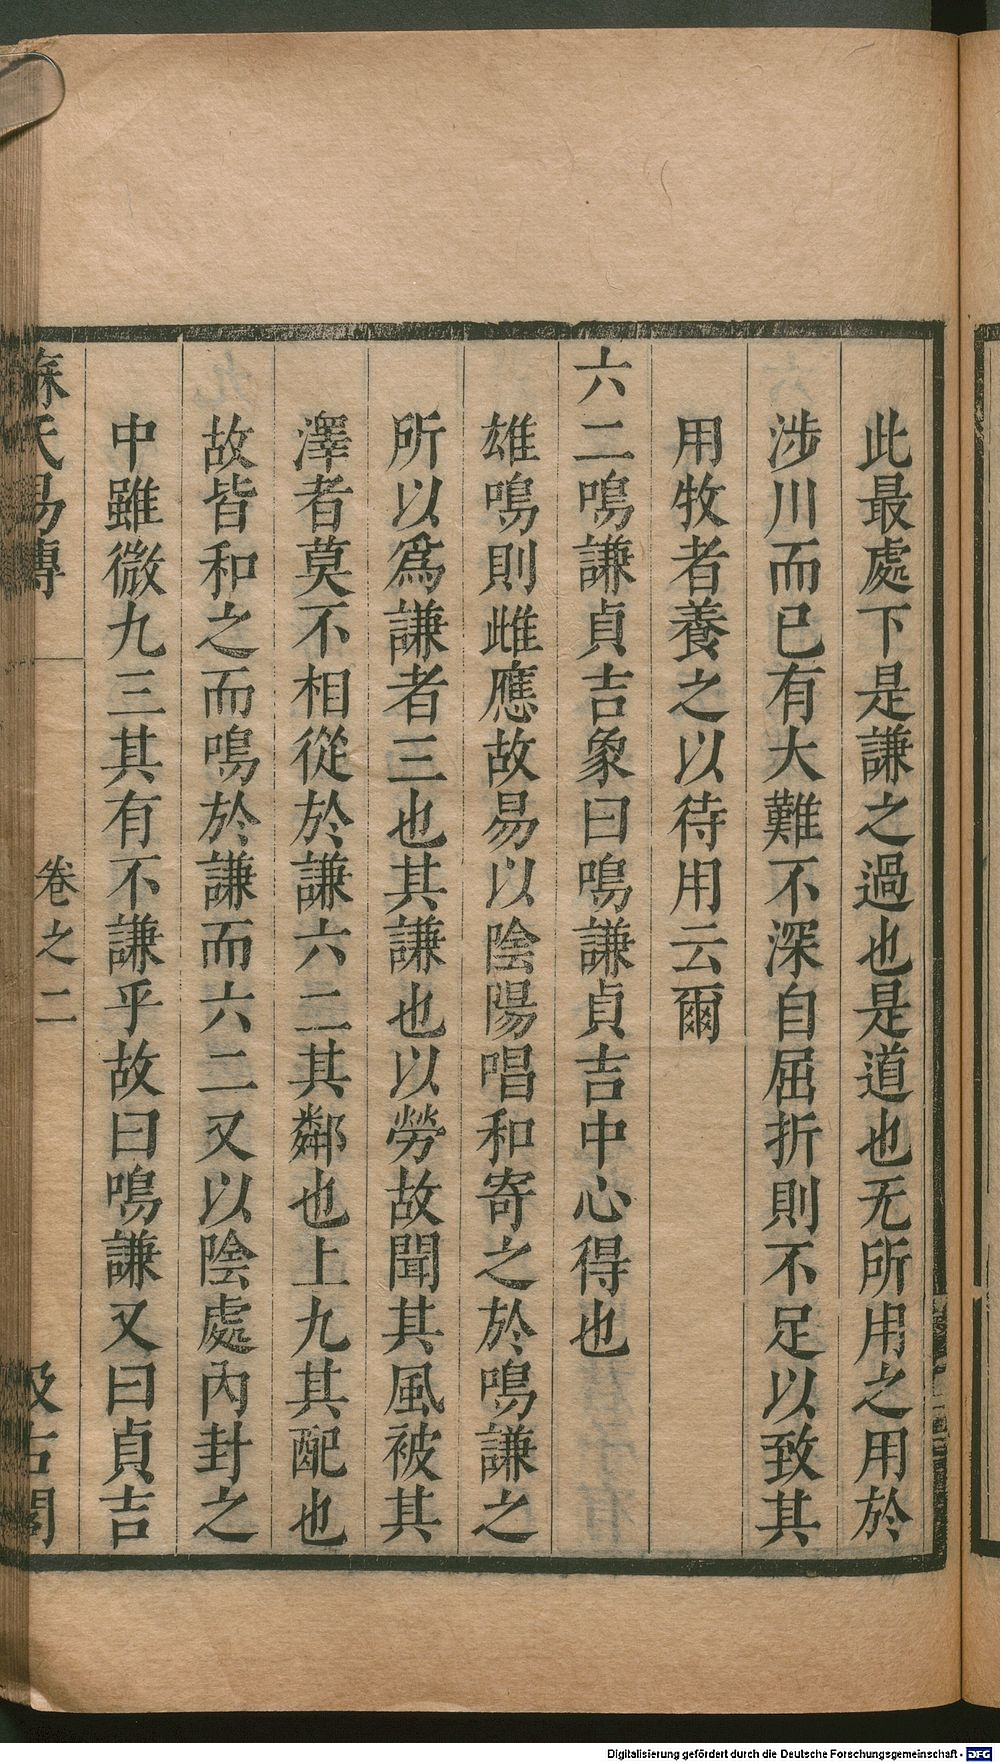 此最處下是謙之過也是道也无所用之用於
涉川而已有大難不深自屈折則不足以致其
用牧者養之以待用云爾
六二鳴謙貞吉象曰鳴謙貞吉中心得也
雄鳴則雌應故易以陰陽唱和寄之於鳴謙之
所以爲謙者三也其謙也以勞故聞其風被其
澤者莫不相從於謙六二其鄰也上九其配也
故皆和之而鳴於謙而六二又以陰處內封之
中雖微九三其有不謙乎故曰鳴謙又曰貞吉
蘇氏易傳 卷之二 汲古閣
Digitalisierung gefördert durch die Deutsche Forschungsgemeinschaft - DFG